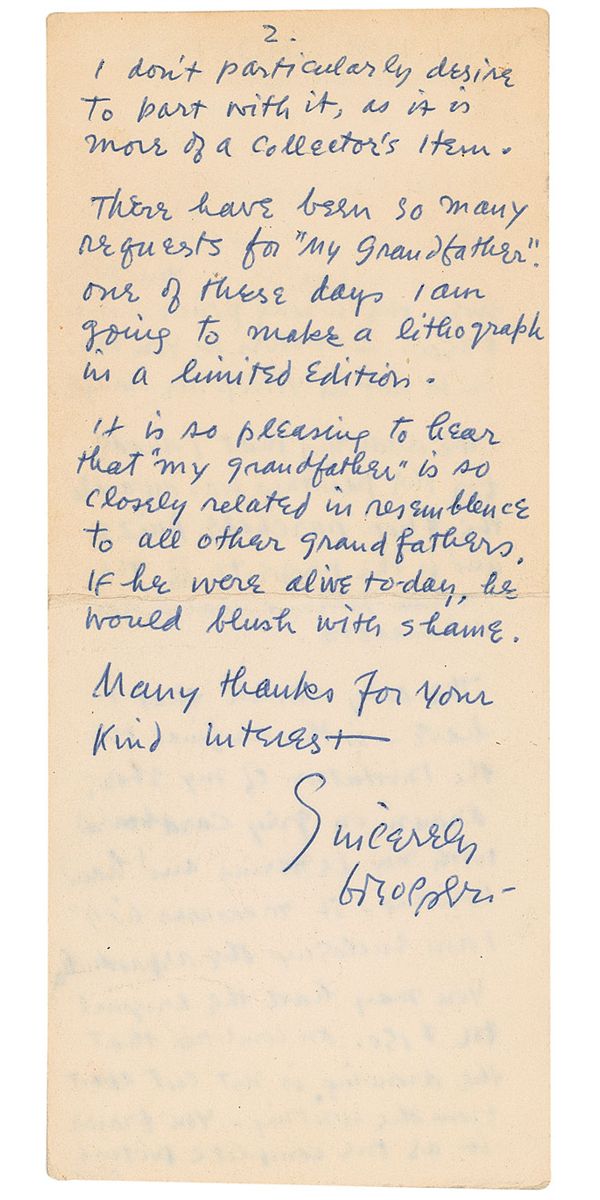 2.
I don't particularly desire
to part with it, as it is
more of a collector's item.
There have been so many
requests for "My Grandfather".
one of these days I am
going to make a lithograph
in a limited edition.
it is so pleasing to hear
that "my grandfather" is so
closely related in resemblence
to all other grandfathers.
If he were alive to-day, he
would blush with shame.
Many thanks for your
Kind interest—
Sincerely